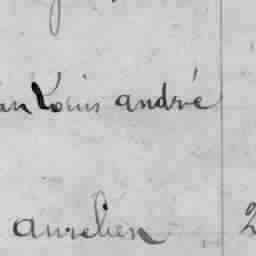 an Louis andré
aurelien 2